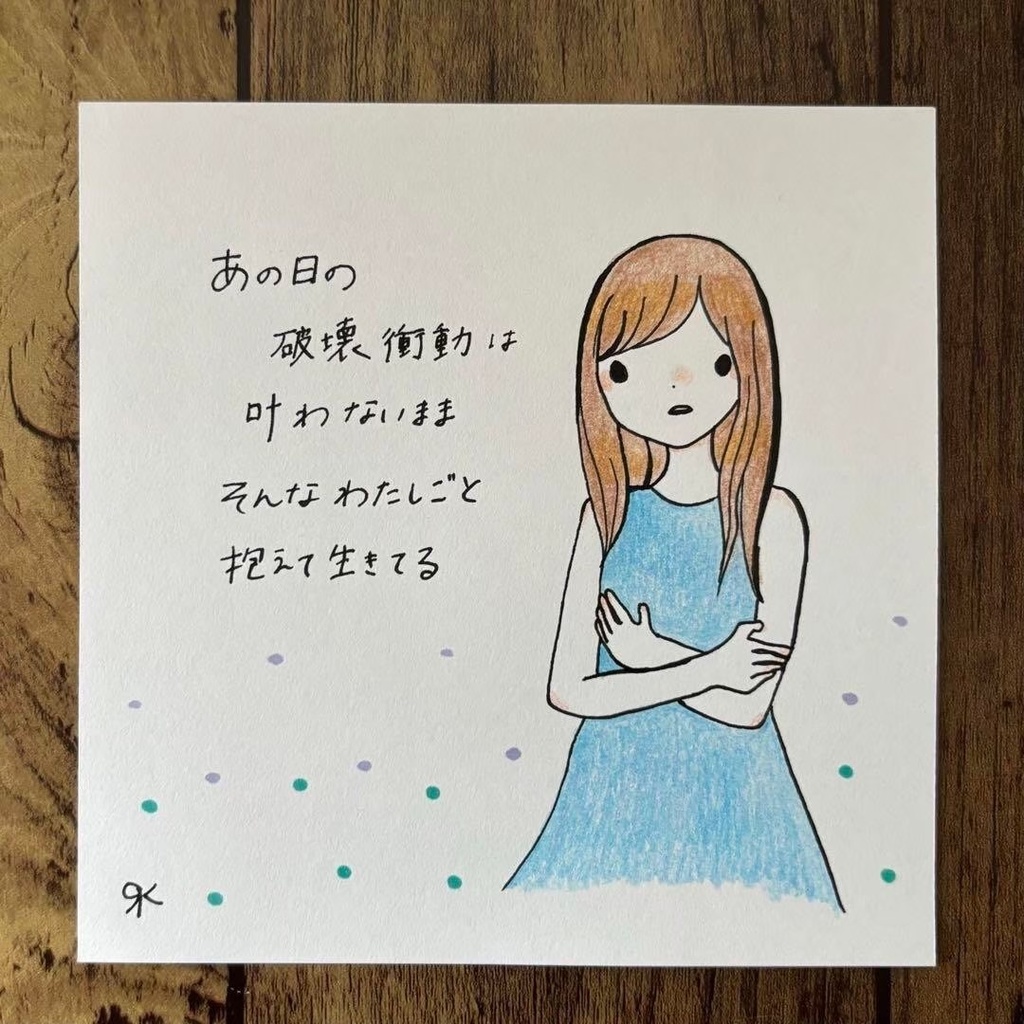 あの日の
破壊衝動は
叶わないまま
そんなわたしごと
抱えて生きてる